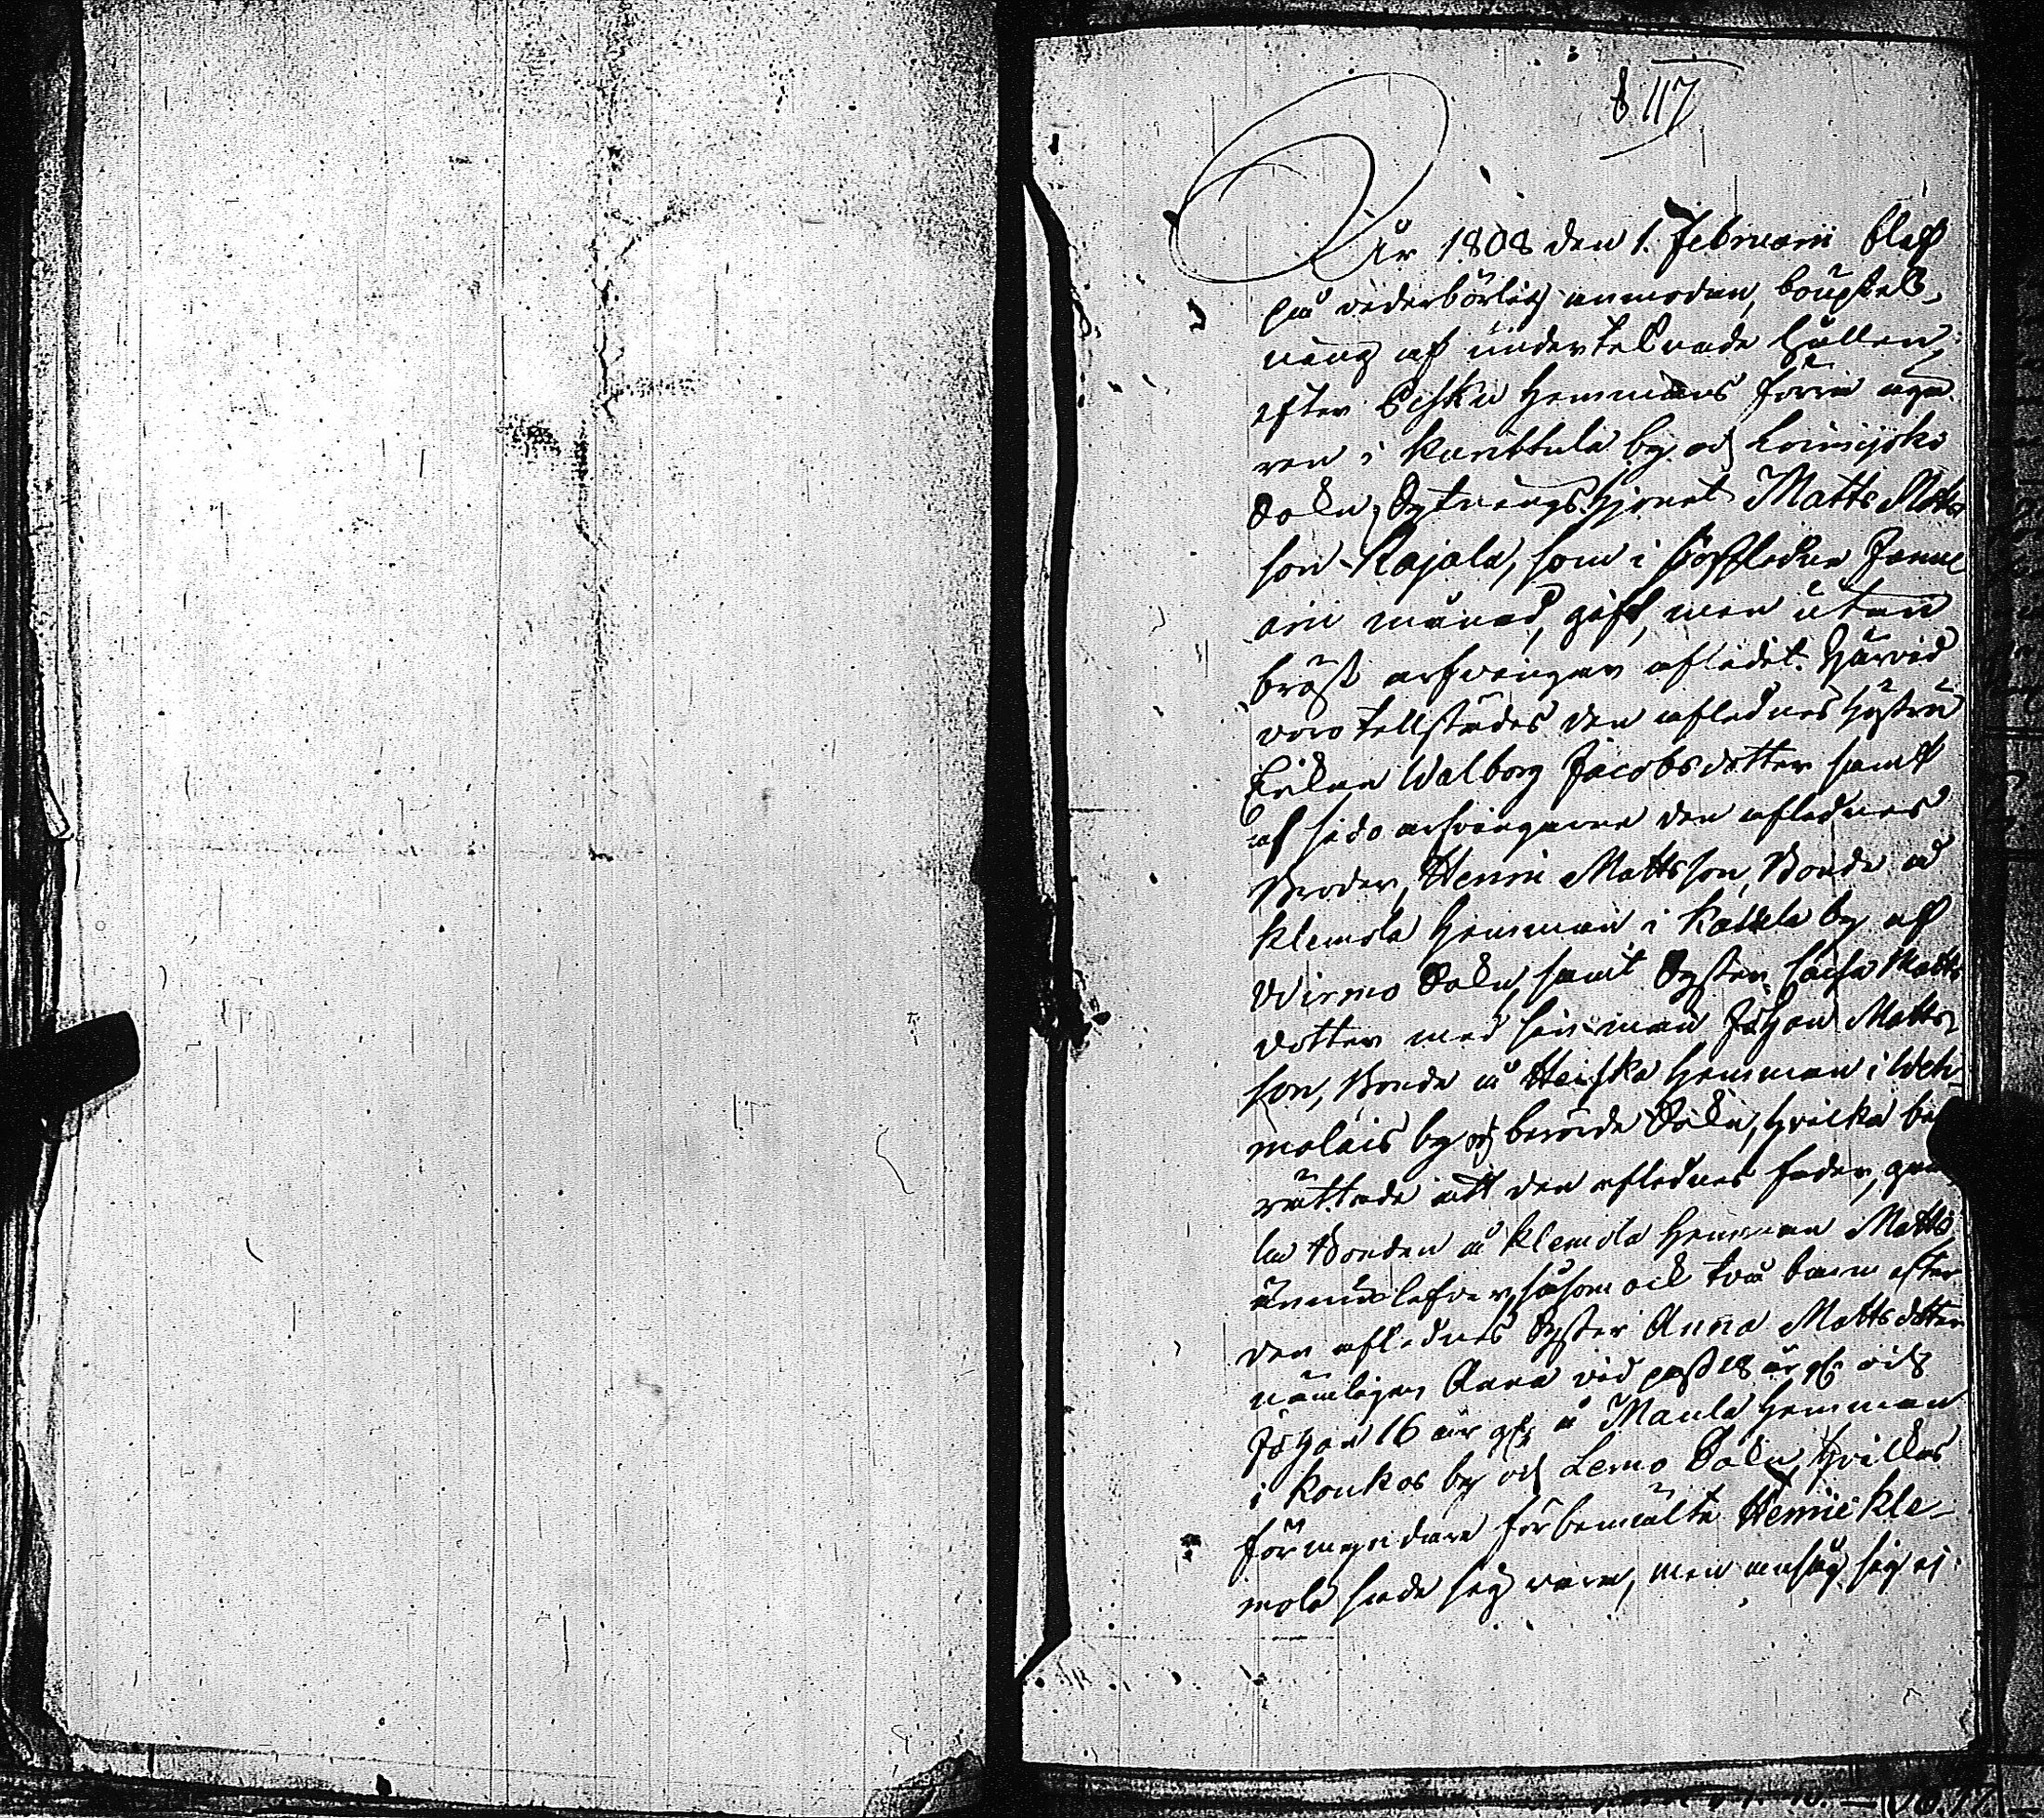 § 117
År 1808 den 1. Februarii blef
på vederbörlig anmodan, bouptek-
ning af underteknade hållen
efter Esku Hemmans förra äga-
ren i Karittula by och Loimijoki
Sokn, Sytningshjonet Matts Matts
son Rajala, som i sistledne Janu
arii månad, gift, men utan
bröst arfvingar afledit. Härvid
voro tillstädes den aflednes hustru
Enkan Walborg Jacobsdotter samt
af sido arfvingarne den aflednes
Broder, Henric Mattsson, Bonde å
Klemola Hemman i by af
Wirmo Sokn, samt Syster Caisa Matts
dotter med sin man Johan Matts-
son, Bonde å Heiska Hemman i Weh-
molais by och berörde Sokn, hvilka be
rättade att den aflednes fader, gam
la Bonden å Klemola Hemman Matts
ännu lefver, såsom ock två barn efter
den aflednes Syster Anna Mattsdotter
nämligen Anna vid pass 18 år gl. och
Johan 16 år gl. å Maula Hemman
i Konkos by och Lemo Sokn, hvilkas
förmyndare förbemälte Henric Kle-
mola sade sig vara, men ansåg sig ej